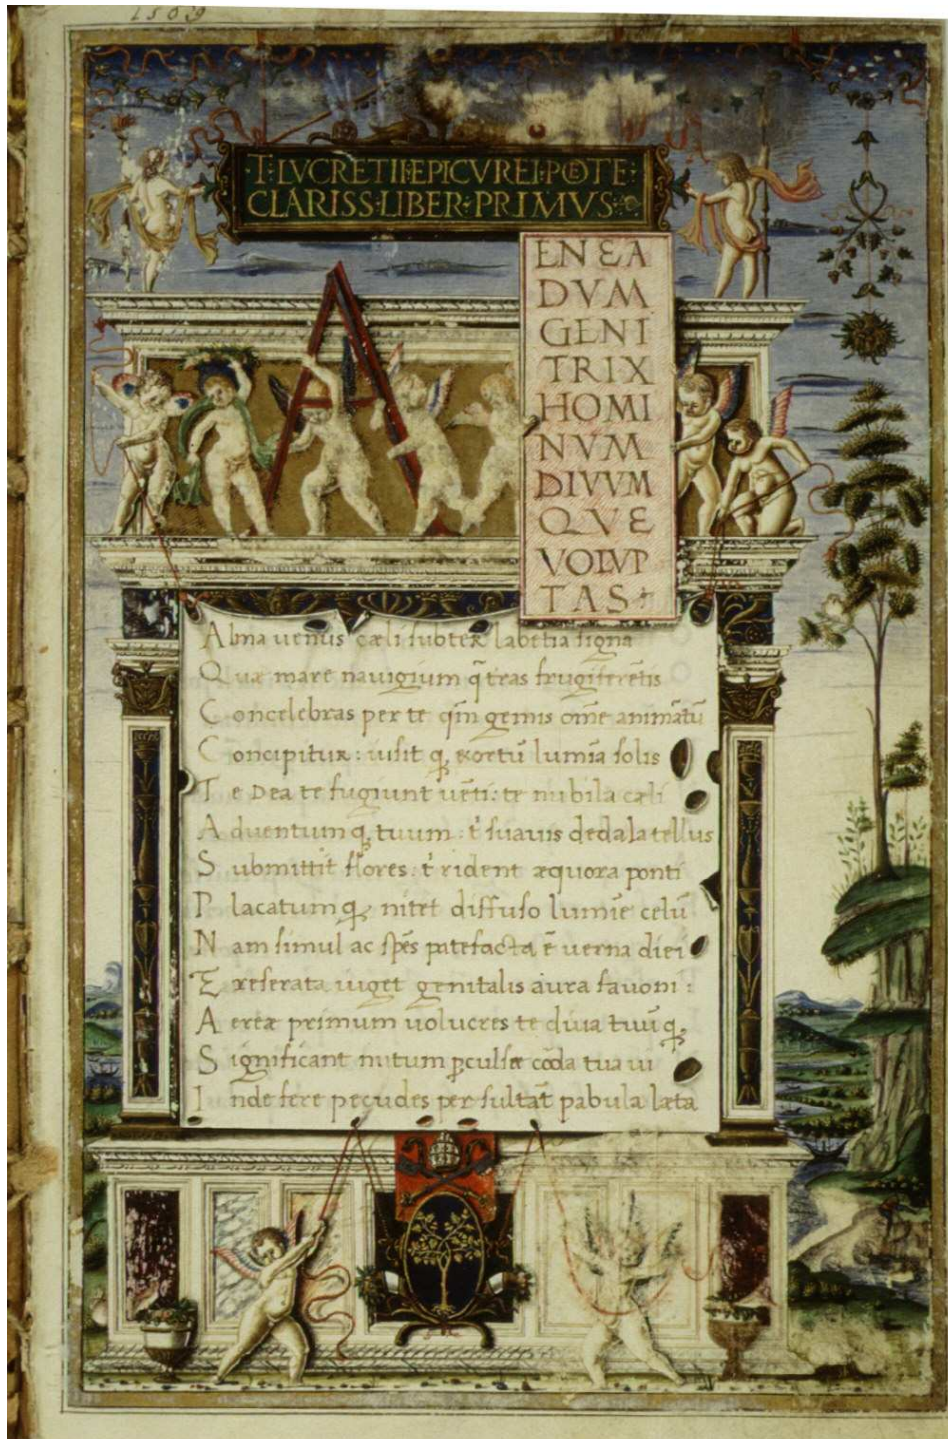 1569
·T·LVCRETII·EPICVREI·POETE·
CLARISS·LIBER·PRIMVS·
A
ENEA
DVM
GENI
TRIX
HOMI
NVM
DIVVM
QVE
VOLVP
TAS
Alma uenus cæli subter labētia signa
Quæ mare nauigium q̄ tras frugiferētis
Concelebras per te qm̄ genus om̄e animātū
Concipitur: uisit q̨ exortū lumīa solis
Te Dea te fugiunt uēti: te nubila cæli
Aduentumq̨ tuum: t̄ suauis dedala tellus
Submittit flores: t̄ rident æquora ponti
Placatumq̨ nitet diffuso lumīe celū
Nam simul ac spēs patefacta ē uerna diei
Exreserata uiget genitalis aura fauoni:
Aereæ primum uolucres te diua tuūq̨
Significant initum ꝑculsæ corda tua ui
Inde fere pecudes per sultāt pabula læta